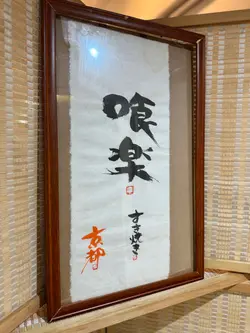 喰楽
すき焼き
京都